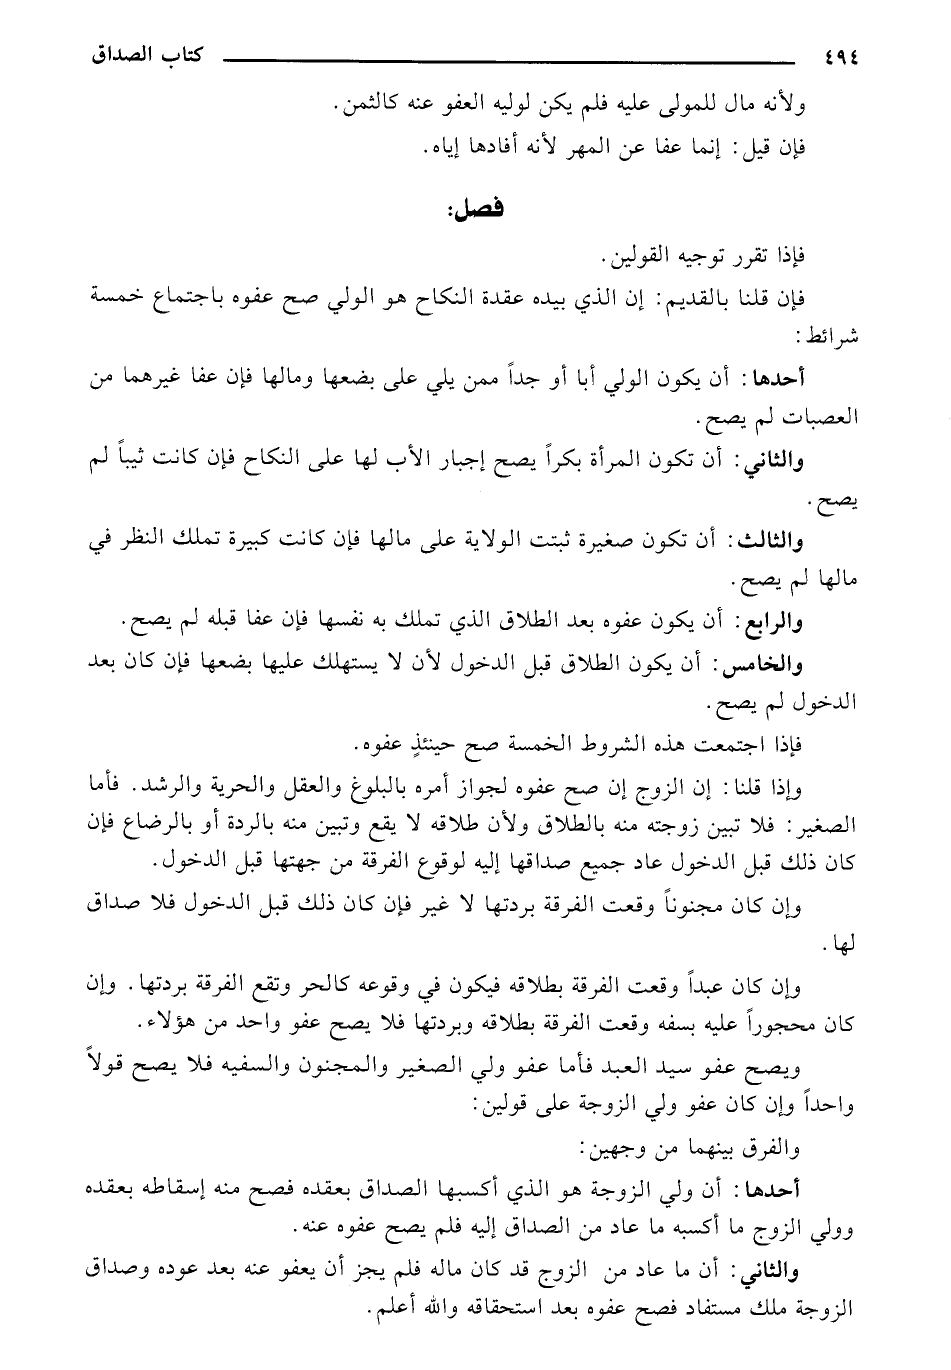 ٤٩٤ كتاب الصداق
ولأنه مال للمولى عليه فلم يكن لوليه العفو عنه كالثمن.
فإن قيل: إنما عفا عن المهر لأنه أفادها إياه.
فصل:
فإذا تقرر توجيه القولين.
فإن قلنا بالقديم: إن الذي بيده عقدة النكاح هو الولي صح عفوه باجتماع خمسة
شرائط:
أحدها: أن يكون الولي أبا أو جداً ممن يلي على بضعها ومالها فإن عفا غيرهما من
العصبات لم يصح.
والثاني: أن تكون المرأة بكراً يصح إجبار الأب لها على النكاح فإن كانت ثيباً لم
يصح.
والثالث: أن تكون صغيرة ثبتت الولاية على مالها فإن كانت كبيرة تملك النظر في
مالها لم يصح.
والرابع: أن يكون عفوه بعد الطلاق الذي تملك به نفسها فإن عفا قبله لم يصح.
والخامس: أن يكون الطلاق قبل الدخول لأن لا يستهلك عليها بضعها فإن كان بعد
الدخول لم يصح.
فإذا اجتمعت هذه الشروط الخمسة صح حينئذٍ عفوه.
وإذا قلنا: إن الزوج إن صح عفوه لجواز أمره بالبلوغ والعقل والحرية والرشد. فأما
الصغير: فلا تبين زوجته منه بالطلاق ولأن طلاقه لا يقع وتبين منه بالردة أو بالرضاع فإن
كان ذلك قبل الدخول عاد جميع صداقها إليه لوقوع الفرقة من جهتها قبل الدخول.
وإن كان مجنوناً وقعت الفرقة بردتها لا غير فإن كان ذلك قبل الدخول فلا صداق
لها.
وإن كان عبداً وقعت الفرقة بطلاقه فيكون في وقوعه كالحر وتقع الفرقة بردتها. وإن
كان محجوراً عليه بسفه وقعت الفرقة بطلاقه وبردتها فلا يصح عفو واحد من هؤلاء.
ويصح عفو سيد العبد فأما عفو ولي الصغير والمجنون والسفيه فلا يصح قولاً
واحداً وإن كان عفو ولي الزوجة على قولين:
والفرق بينهما من وجهين:
أحدها: أن ولي الزوجة هو الذي أكسبها الصداق بعقده فصح منه إسقاطه بعقده
وولي الزوج ما أكسبه ما عاد من الصداق إليه فلم يصح عفوه عنه.
والثاني: أن ما عاد من الزوج قد كان ماله فلم يجز أن يعفو عنه بعد عوده وصداق
الزوجة ملك مستفاد فصح عفوه بعد استحقاقه والله أعلم.